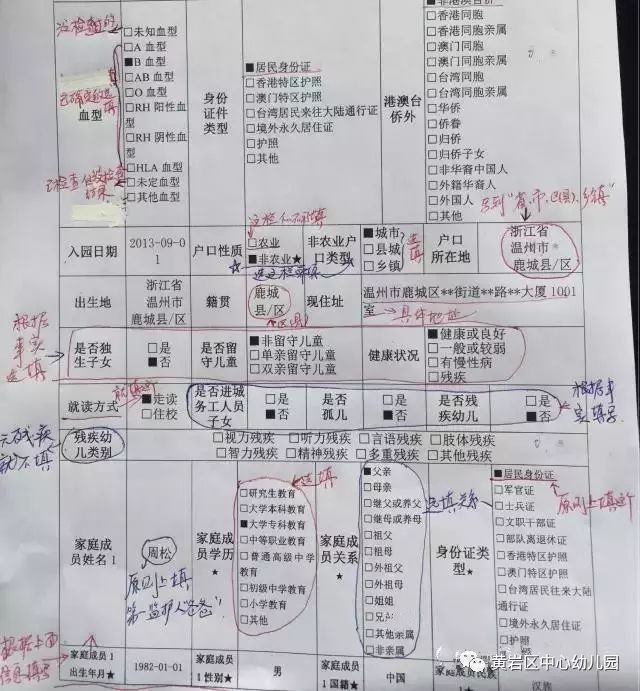 没检查的
□未知血型
□A 血型
■B 血型
□AB 血型
□O 血型
□RH 阳性血型
□RH 阴性血型
□HLA 血型
□未定血型
□其他血型
血型
身份证件类型
■居民身份证
□香港特区护照
□澳门特区护照
□台湾居民来往大陆通行证
□境外永久居住证
□护照
□其他
港澳台侨外
■非港澳台侨
□香港同胞
□香港同胞亲属
□澳门同胞
□澳门同胞亲属
□台湾同胞
□台湾同胞亲属
□华侨
□侨眷
□归侨
□归侨子女
□非华裔中国人
□外籍华裔人
□外国人
□其他
入园日期
2013-09-01
户口性质
□农业
■非农业★
非农业户口类型★
■城市
□县城
□乡镇
选填
户口所在地
浙江省
温州市
鹿城县/区
出生地
浙江省
温州市
鹿城县/区
籍贯
鹿城
县/区
现住址
温州市鹿城区**街道**路**大厦 1001室
具体地址
根据事实选填
是否独生子女
□是
■否
是否留守儿童
■非留守儿童
□单亲留守儿童
□双亲留守儿童
健康状况
■健康或良好
□一般或较弱
□有慢性病
□残疾
就读方式
■走读
□住校
是否进城务工人员子女
□是
■否
是否孤儿
□是
■否
是否残疾幼儿
□是
■否
根据事实填写
无残疾就不填
残疾幼儿类别
□视力残疾 □听力残疾 □言语残疾 □肢体残疾
□智力残疾 □精神残疾 □多重残疾 □其他残疾
家庭成员姓名 1
周松
原则上填第一监护人"爸爸"
家庭成员学历★
选填
□研究生教育
□大学本科教育
■大学专科教育
□中等职业教育
□普通高级中学教育
□初级中学教育
□小学教育
□其他
家庭成员关系★
■父亲
□母亲
□继父或养父
□继母或养母
□祖父
□祖母
□外祖父
□外祖母
□姐姐
□兄弟
□其他亲属
□非亲属
选填关系
身份证类型★
■居民身份证
□军官证
□士兵证
□文职干部证
□部队离退休证
□香港特区护照
□澳门特区护照
□台湾居民来往大陆通行证
□境外永久居住证
□护照
原则上填这个
家庭成员 1 出生年月★
1982-01-01
家庭成员 1 性别★
男
家庭成员 1 国籍★
中国
家庭成员民族
汉族
黄岩区中心幼儿园